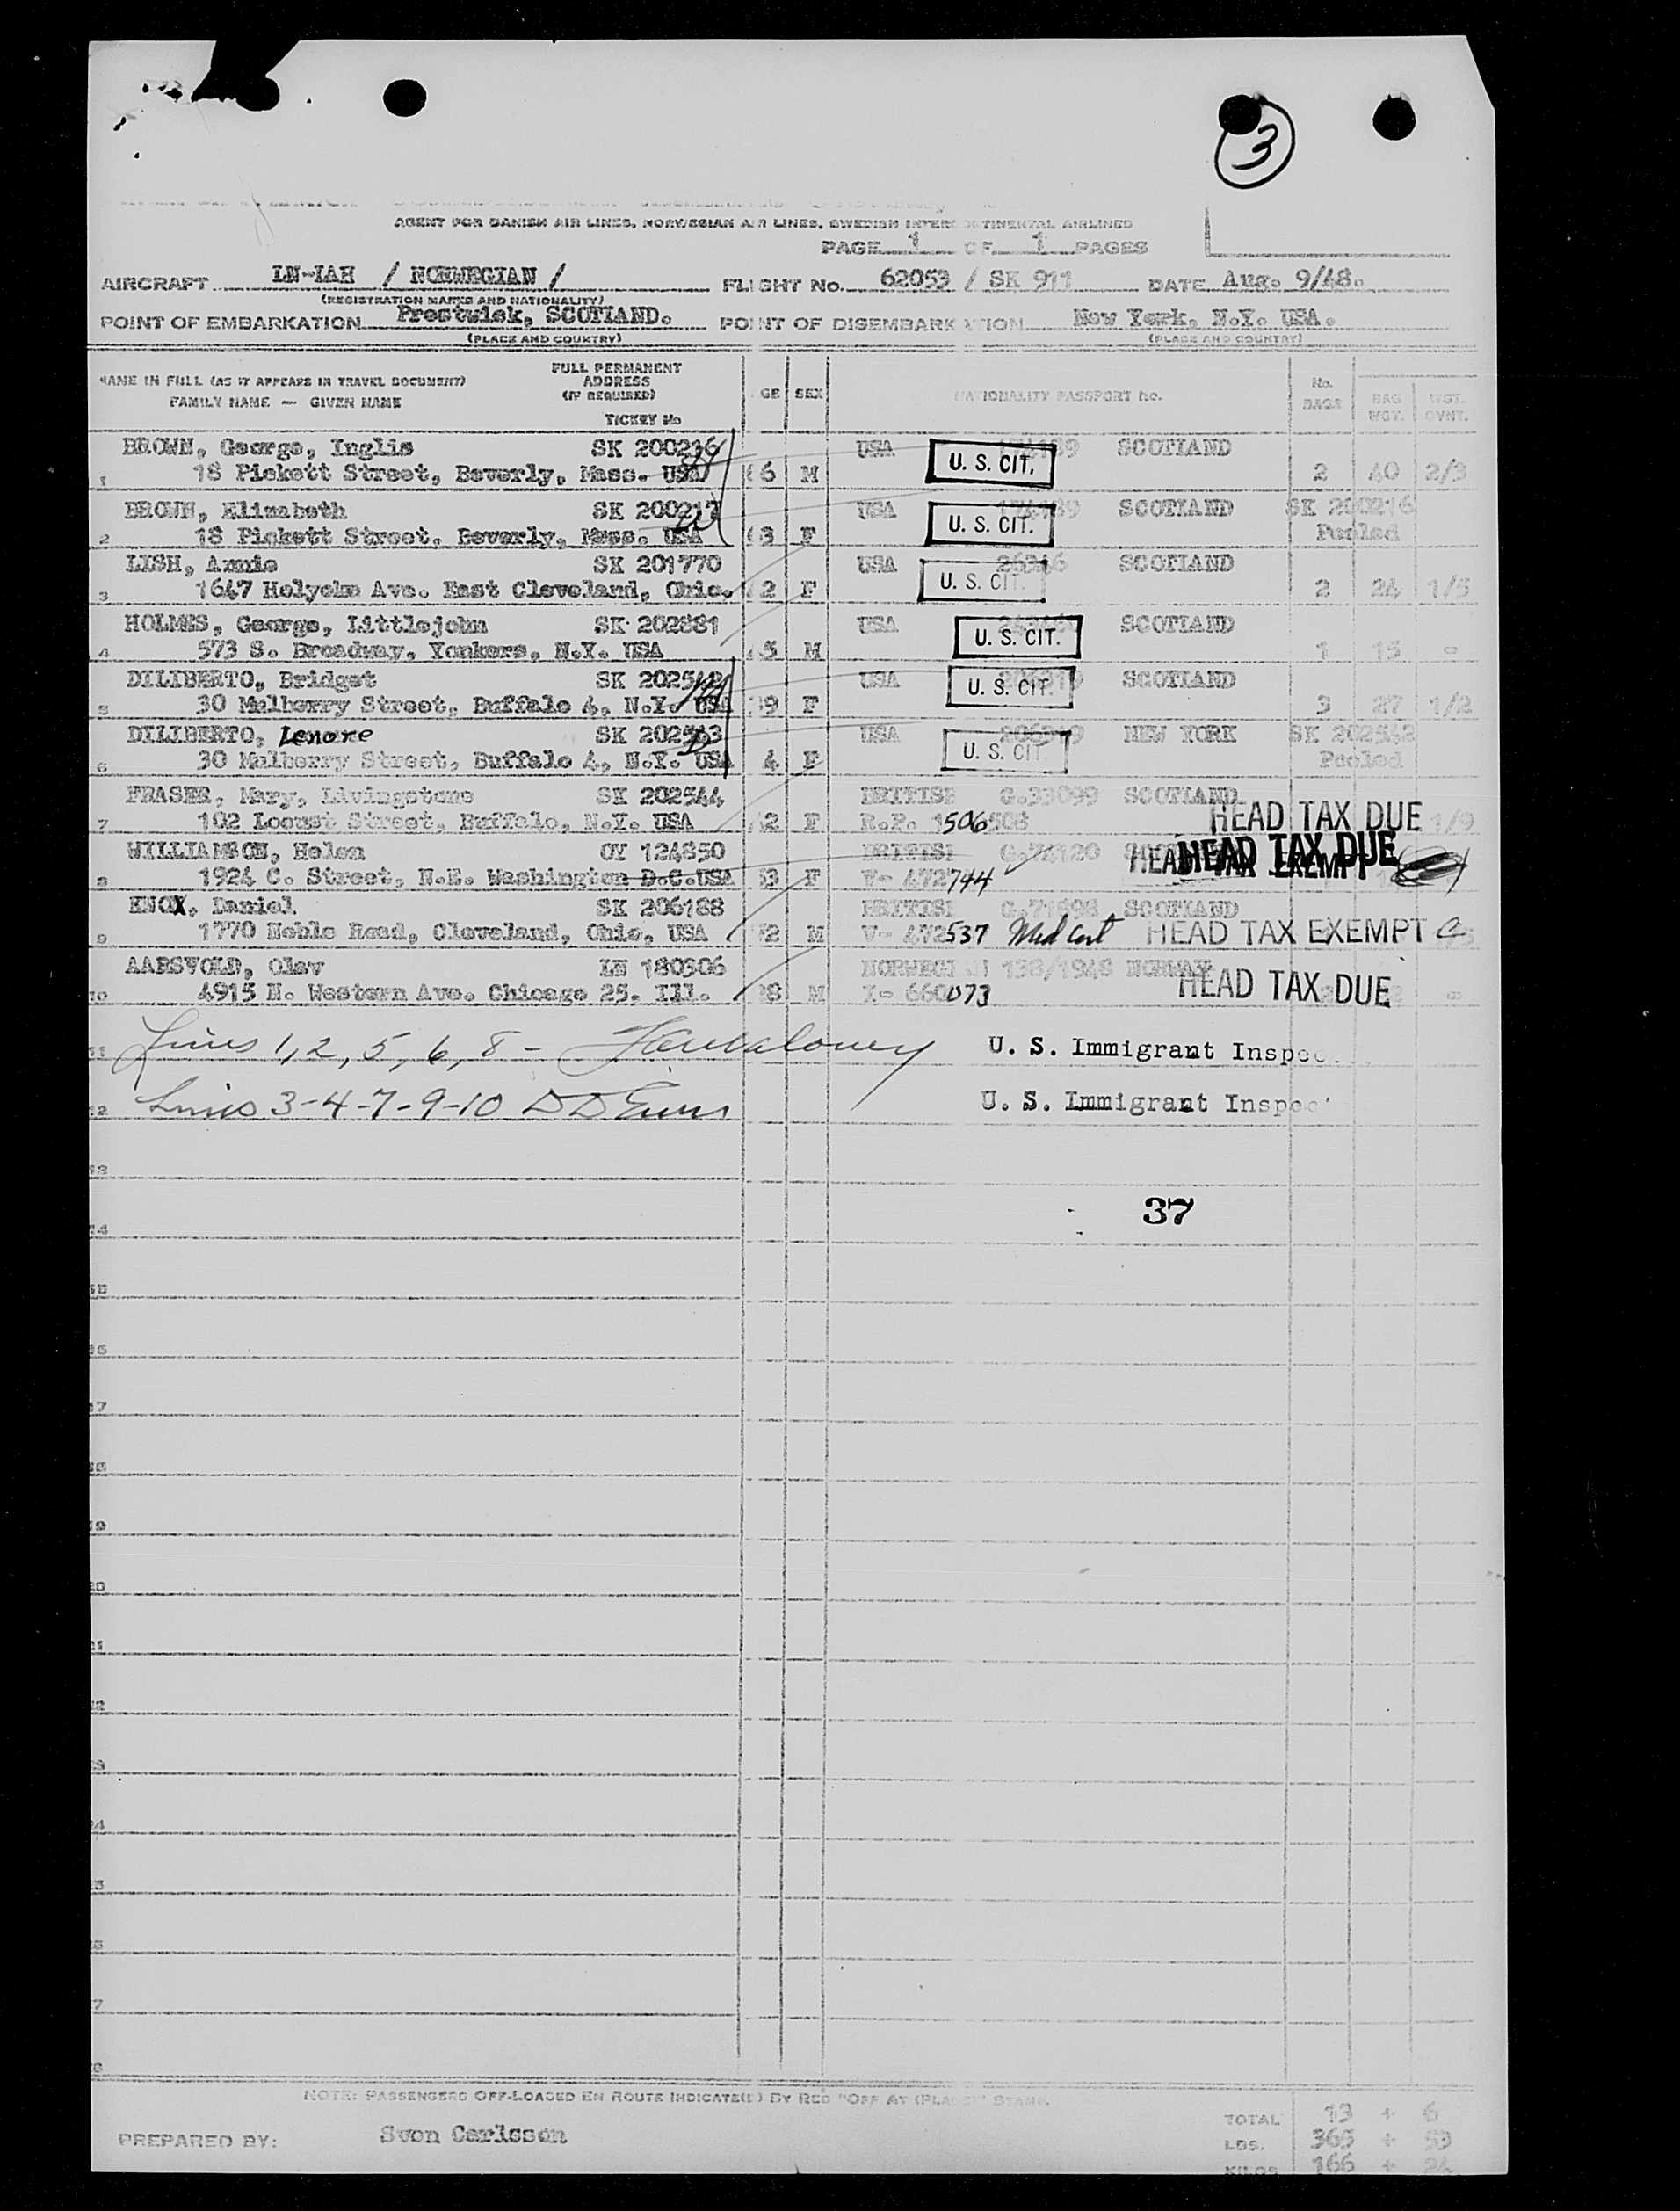 3
AGENT FOR DANISH AIR LINES, NORWEGIAN AIR LINES, SWEDISH INTERCONTINENTAL AIRLINES
PAGE 1 OF 1 PAGES
AIRCRAFT LN-IAH / NORWEGIAN / FLIGHT No. 62053 / SK 911 DATE Aug. 9/48.
(REGISTRATION MARKS AND NATIONALITY)
POINT OF EMBARKATION Prestwick, SCOTLAND. POINT OF DISEMBARKATION New York, N.Y. USA.
(PLACE AND COUNTRY) (PLACE AND COUNTRY)
NAME IN FULL (AS IT APPEARS IN TRAVEL DOCUMENT) FULL PERMANENT ADDRESS (IF REQUIRED) GE SEX NATIONALITY PASSPORT No. No. BAGS BAG WGT. WGT. OVWT.
FAMILY NAME — GIVEN NAME TICKET No
BROWN, George, Inglis SK 200216 USA SCOTLAND
1 18 Pickett Street, Beverly, Mass. USA 6 M U. S. CIT. 2 40 2/3
BROWN, Elizabeth SK 200217 USA SCOTLAND SK 200216
2 18 Pickett Street, Beverly, Mass. USA 3 F U. S. CIT. Pooled
LISH, Annie SK 201770 USA 26346 SCOTLAND
3 1647 Holyoke Ave. East Cleveland, Ohio. 2 F U. S. CIT. 2 24 1/5
HOLMES, George, Littlejohn SK 202881 USA SCOTLAND
4 573 S. Broadway, Yonkers, N.Y. USA 5 M U. S. CIT. 1 15 -
DILIBERTO, Bridget SK 202542 USA SCOTLAND
5 30 Mulberry Street, Buffalo 4, N.Y. USA 9 F U. S. CIT. 3 27 1/2
DILIBERTO, Lenore SK 202543 USA NEW YORK SK 202542
6 30 Mulberry Street, Buffalo 4, N.Y. USA 4 F U. S. CIT. Pooled
FRASER, Mary, Livingstone SK 202544 BRITISH G.33099 SCOTLAND
7 102 Locust Street, Buffalo, N.Y. USA 2 F R.P. 1506508 HEAD TAX DUE 1/9
WILLIAMSON, Helen OY 124850 BRITISH HEAD TAX DUE
8 1924 C. Street, N.E. Washington D.C. USA 3 F V- 472744 HEAD TAX EXEMPT
KNOX, Daniel SK 206188 BRITISH G.71898 SCOTLAND
9 1770 Noble Road, Cleveland, Ohio, USA 2 M V- 472537 Med Cert HEAD TAX EXEMPT
AARSVOLD, Olav LN 180306 NORWEGIAN 138/1948 NORWAY
10 4915 N. Western Ave. Chicago 25. Ill. 8 M I- 660073 HEAD TAX DUE -
11 Lines 1, 2, 5, 6, 8 - U. S. Immigrant Inspec
12 Lines 3-4-7-9-10 D D Evans U. S. Immigrant Inspec
13
37
14
15
16
17
18
19
20
21
22
23
24
25
26
27
28
NOTE: PASSENGERS OFF-LOADED EN ROUTE INDICATE(D) BY RED "OFF AT (PLACE)" STAMP.
TOTAL 13 + 6
PREPARED BY: Sven Carlsson LBS. 365 + 53
KILOS 166 + 24